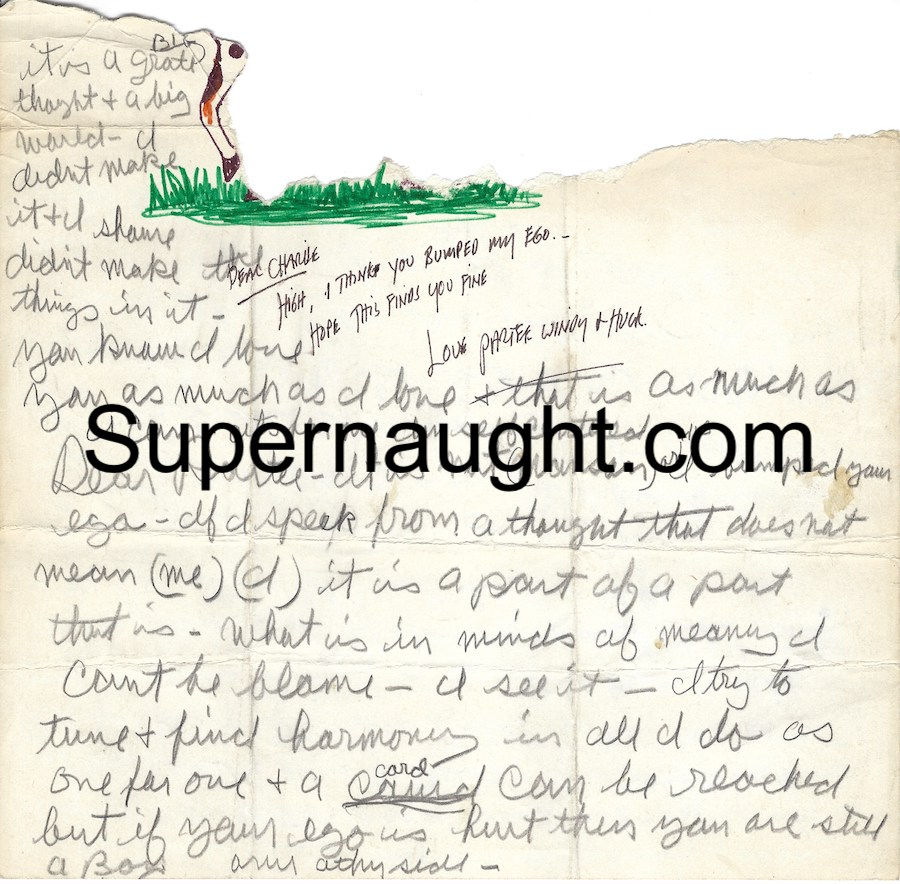 BIG
it is a grate
thaght + a big
world - I
didnt make
it + I shure
didint make the
things in it -
you know I love
you as much as I love + that is as much as
DEAR CHARLIE
HIGH, I THINK YOU BUMPED MY EGO. -
HOPE THIS FINDS YOU FINE
LOVE PARTEE WINDY & HUCK.
Supernaught.com
Dear bumped your
ego - if I speek from a thought that does not
mean (me) (I) it is a part of a part
that is - What is in minds of meaning I
cant be blame - I see it - I try to
tune + find harmony in all I do as
card
one for one + a can be reached
but if your ego is hurt then you are still
a Boy side -